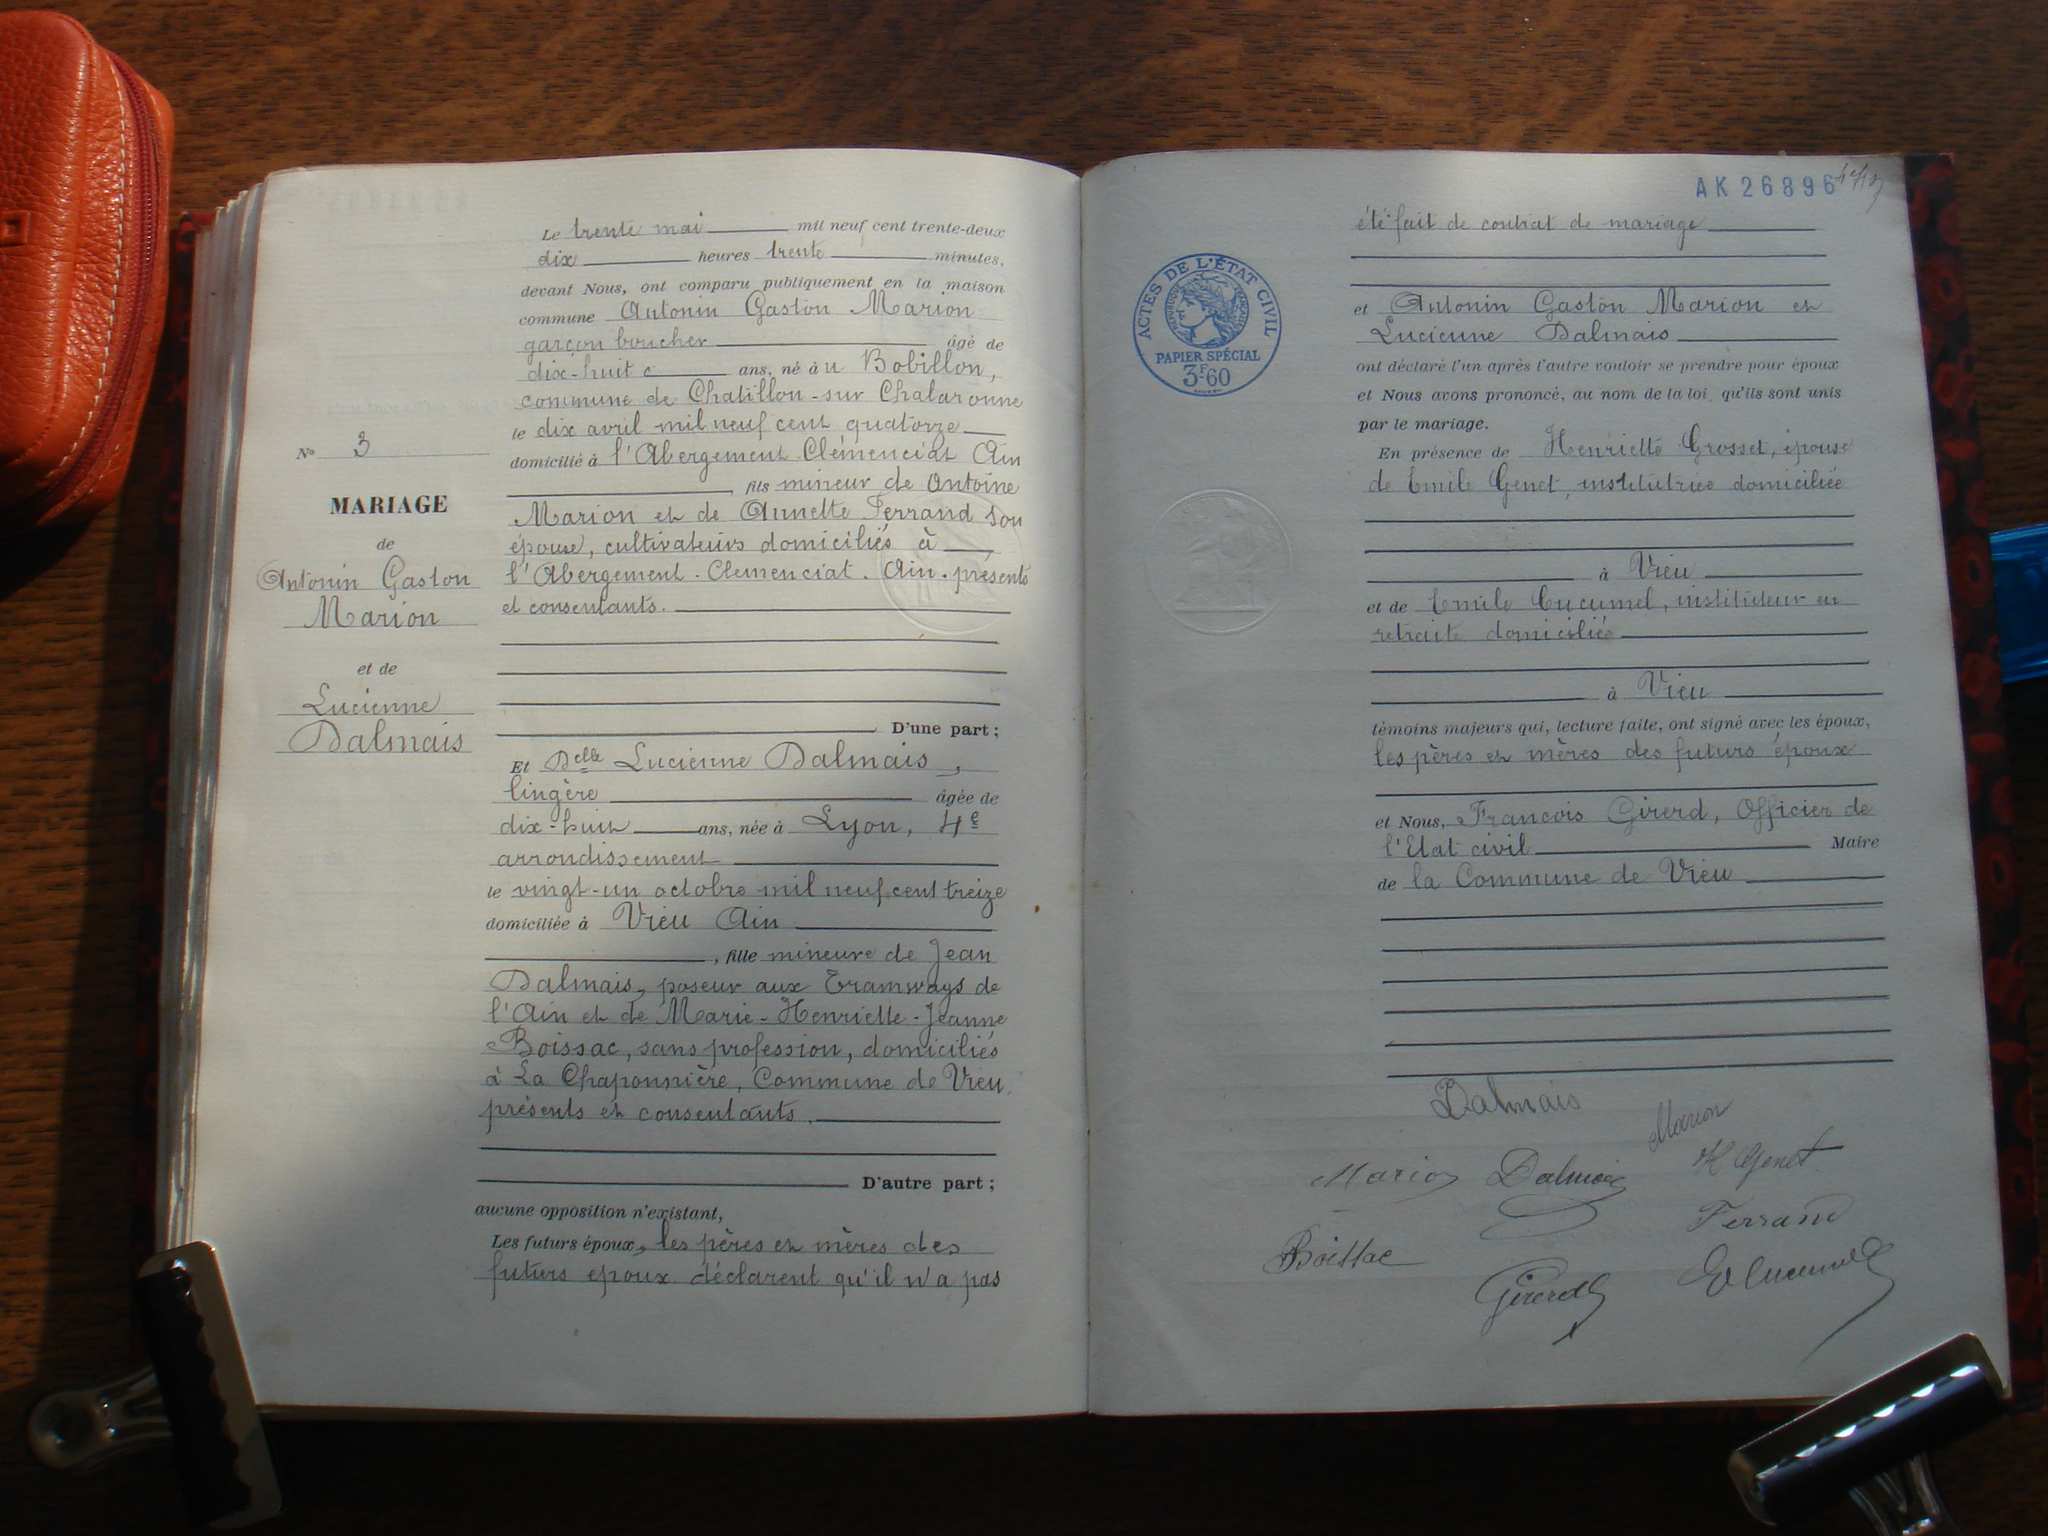 N° 3
MARIAGE
de
Antonin Gaston
Marion
et de
Lucienne
Dalmais
Le trente mai mil neuf cent trente-deux
dix heures trente minutes,
devant Nous, ont comparu publiquement en la maison
commune Antonin Gaston Marion
garçon boucher âgé de
dix-huit ans, né à u Bobillon,
commune de Chatillon-sur Chalaronne
le dix avril mil neuf cent quatorze
domicilié à l'Abergement Clémenciat Ain
, fils mineur de Antoine
Marion et de Annette Ferrand son
épouse, cultivateurs domiciliés à
l'Abergement-Clemenciat. Ain. présents
et consentants.
D'une part ;
Et Delle Lucienne Dalmais,
lingère âgée de
dix-huit ans, née à Lyon, 4e
arrondissement
le vingt-un octobre mil neuf cent treize
domiciliée à Vieu Ain
, fille mineure de Jean
Dalmais, poseur aux Tramways de
l'Ain et de Marie-Henriette-Jeanne
Boissac, sans profession, domiciliés
à La Chaponnière, Commune de Vieu.
présents et consentants.
D'autre part ;
aucune opposition n'existant,
Les futurs époux, les pères et mères des
futurs epoux déclarent qu'il n'a pas
AK26896
été fait de contrat de mariage
ACTES DE L'ÉTAT CIVIL
RÉPUBLIQUE FRANÇAISE
PAPIER SPÉCIAL
3F.60
et Antonin Gaston Marion et
Lucienne Dalmais
ont déclaré l'un après l'autre vouloir se prendre pour époux
et Nous avons prononcé, au nom de la loi, qu'ils sont unis
par le mariage.
En présence de Henriette Grosset, épouse
de Emile Genet, institutrice domiciliée
à Vieu
et de Emile Cucumel, instituteur en
retraite domicilié
à Vieu
témoins majeurs qui, lecture faite, ont signé avec les époux,
les pères et mères des futurs époux
et Nous, Francois Girerd, Officier de
l'Etat civil Maire
de la Commune de Vieu
Dalmais
Marion
Marion Dalmais H Genet
Ferrand
Boissac
Girerd
Cucumel